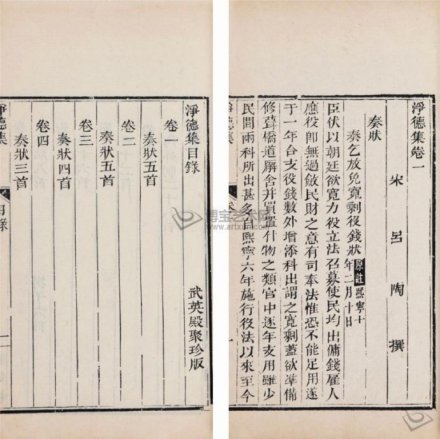 淨德集卷一
宋 呂陶 撰
奏狀
奏乞放免寬剩役錢狀 原註熙寧十年二月十日
臣伏以朝廷欲寬力役立法召募使民均出傭錢雇人
應役即無過斂民財之意有司奉法惟恐不能足用遂
于一年合支役錢數外增添科出謂之寬剩蓋欲準備
修葺橋道廨舍并買置什物之類官中逐年支用雖少
民間兩科所出甚多自熙寧六年施行役法以來至今
淨德集
一
淨德集目錄
武英殿聚珍版
卷一
奏狀五首
卷二
奏狀五首
卷三
奏狀四首
卷四
奏狀三首
淨德集
目錄
一